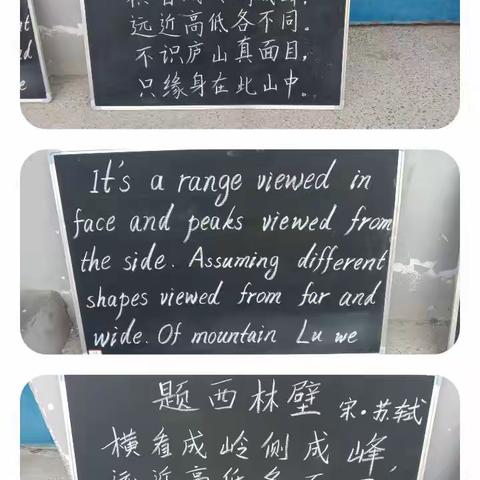 远近高低各不同。
不识庐山真面目，
只缘身在此山中。
It's a range viewed in
face and peaks viewed from
the side. Assuming different
shapes viewed from far and
wide. Of mountain Lu we
题西林壁
宋·苏轼
横看成岭侧成峰，
远近高低各不